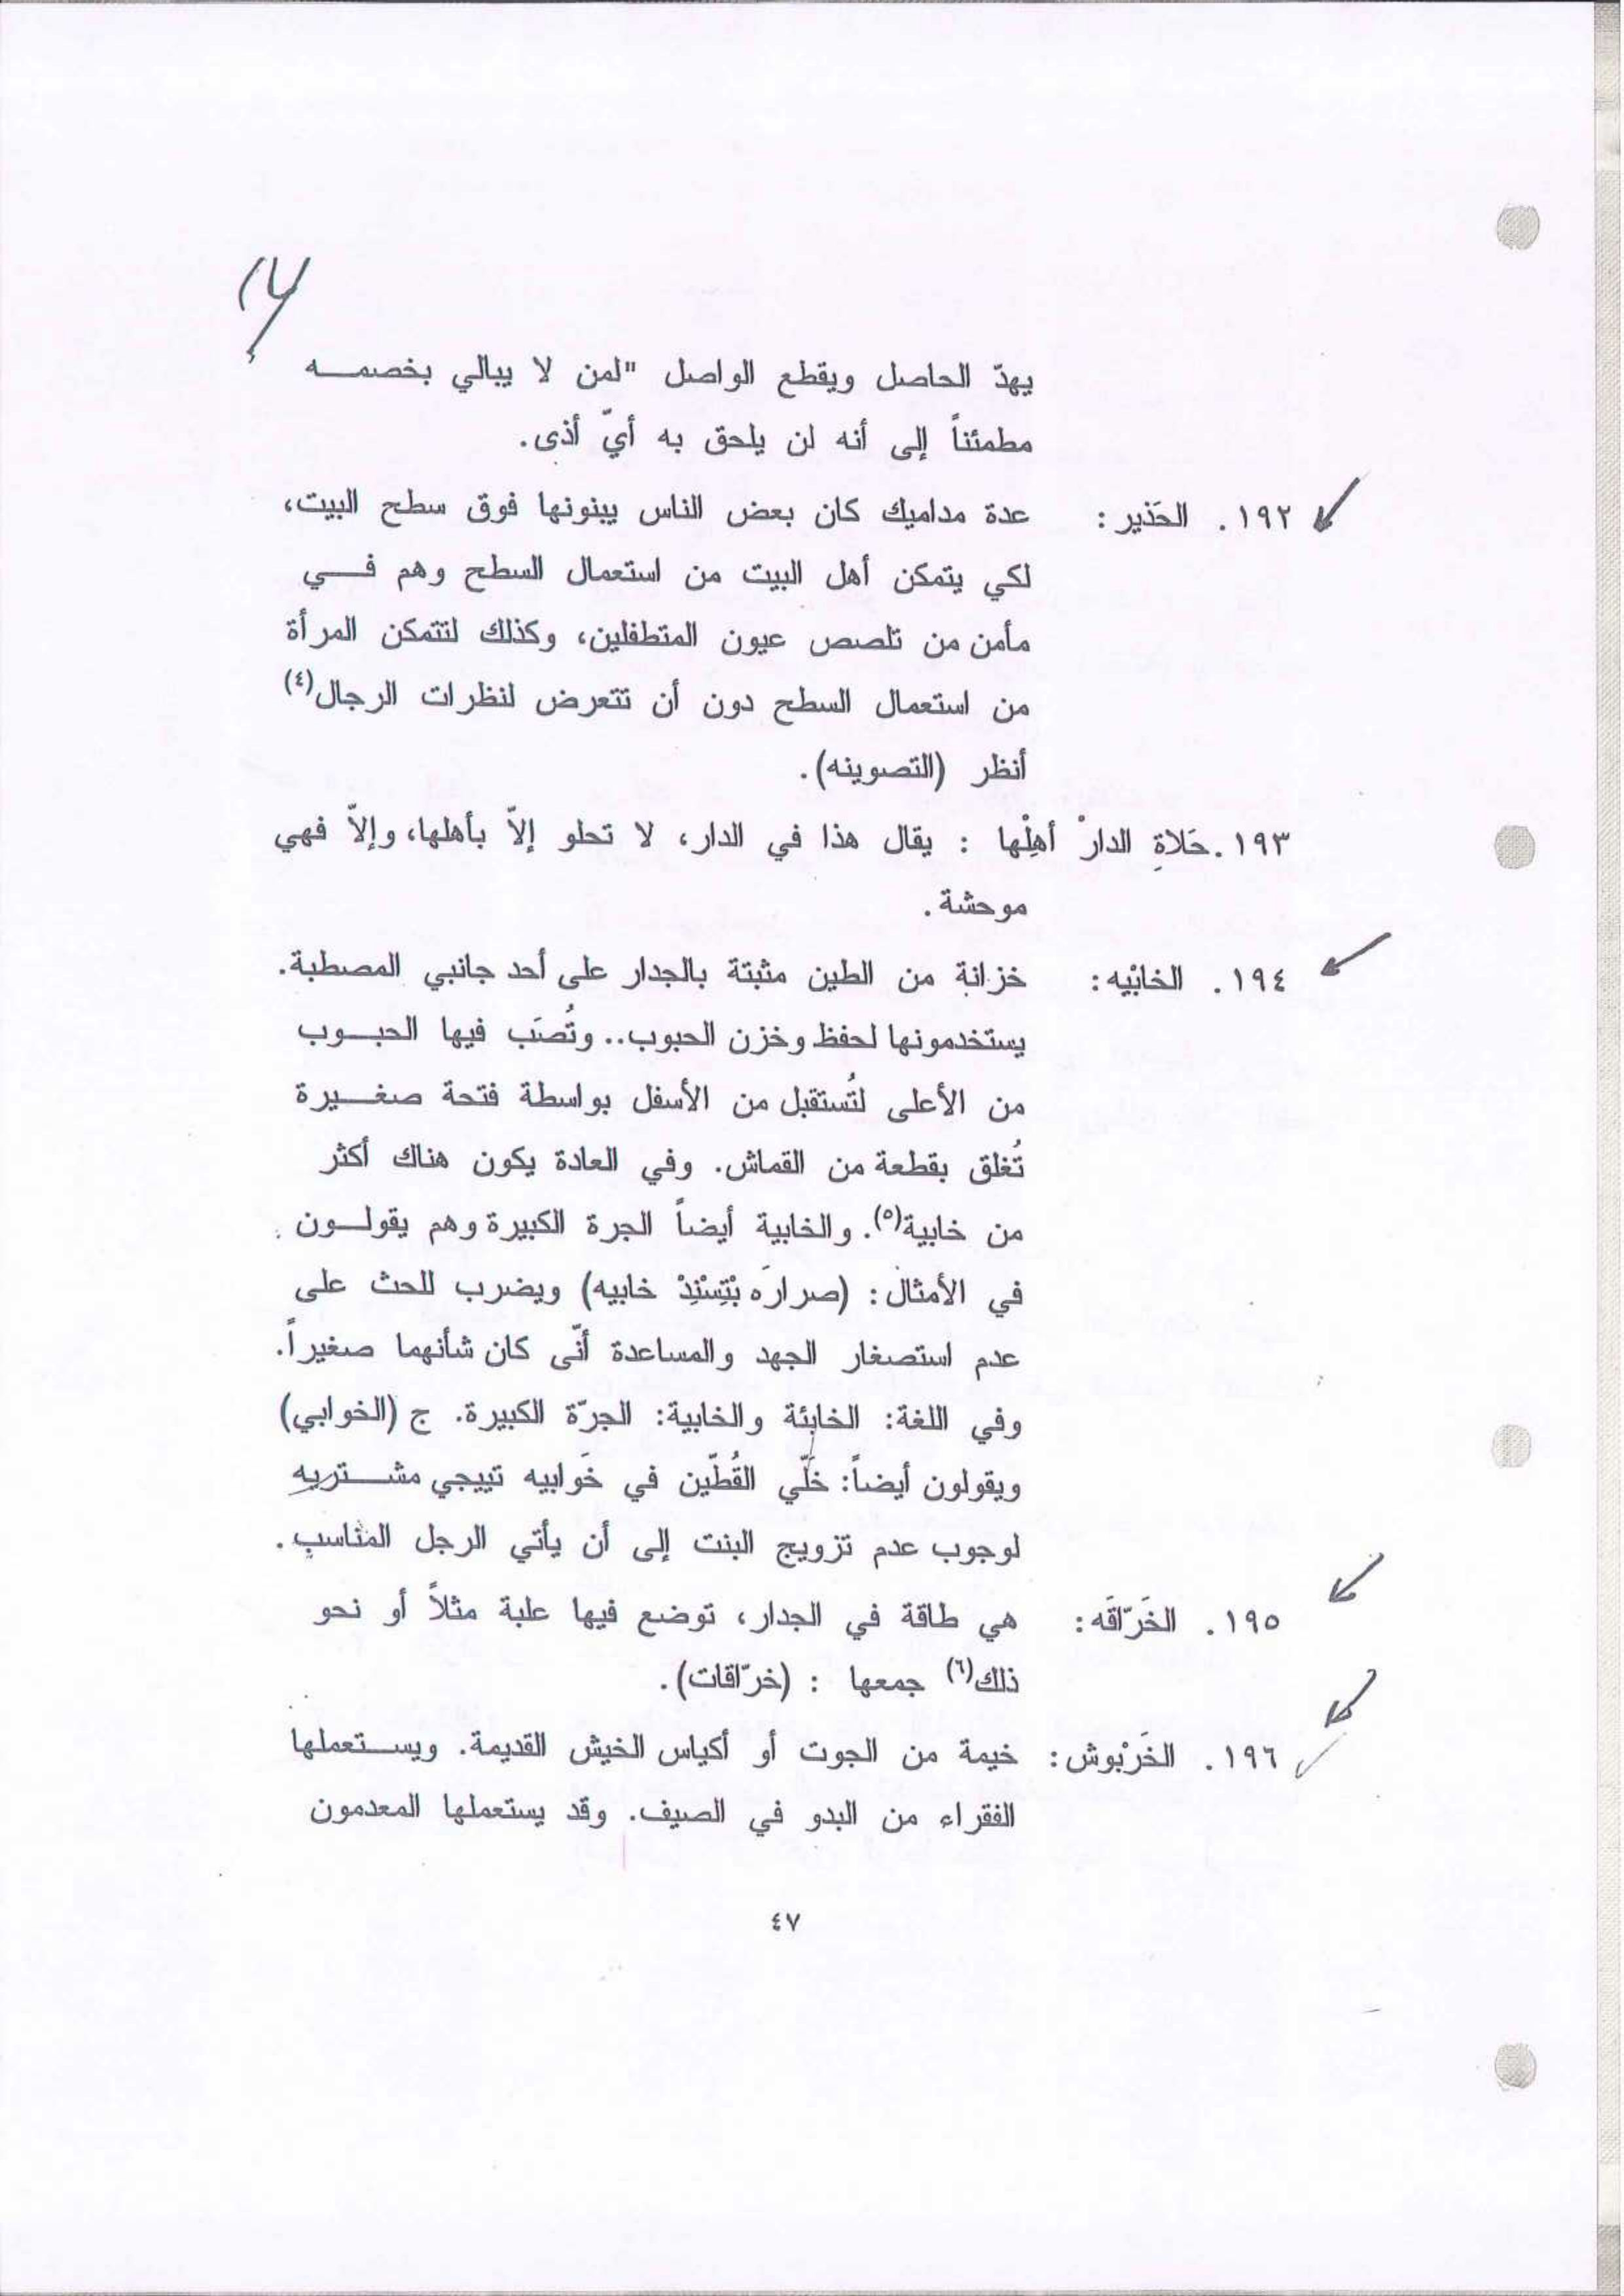 ١٧
يهدّ الحاصل ويقطع الواصل "لمن لا يبالي بخصمــه
مطمئناً إلى أنه لن يلحق به أيّ أذى.
١٩٢. الحَذير: عدة مداميك كان بعض الناس يبنونها فوق سطح البيت،
لكي يتمكن أهل البيت من استعمال السطح وهم فــي
مأمن من تلصص عيون المتطفلين، وكذلك لتتمكن المرأة
من استعمال السطح دون أن تتعرض لنظرات الرجال(٤)
أنظر (التصوينه).
١٩٣. حَلاةِ الدارْ أهِلْها : يقال هذا في الدار، لا تحلو إلاّ بأهلها، وإلاّ فهي
موحشة.
١٩٤. الخابْيه: خزانة من الطين مثبتة بالجدار على أحد جانبي المصطبة.
يستخدمونها لحفظ وخزن الحبوب.. وتُصَب فيها الحبــوب
من الأعلى لتُستقبل من الأسفل بواسطة فتحة صغــيرة
تُغلق بقطعة من القماش. وفي العادة يكون هناك أكثر
من خابية(٥). والخابية أيضاً الجرة الكبيرة وهم يقولــون
في الأمثال: (صرارَه بْتِسْنِدْ خابيه) ويضرب للحث على
عدم استصغار الجهد والمساعدة أنّى كان شأنهما صغيراً.
وفي اللغة: الخابئة والخابية: الجرّة الكبيرة. ج (الخوابي)
ويقولون أيضاً: خَلّي القُطّين في خَوابيه تييجي مشــتريه
لوجوب عدم تزويج البنت إلى أن يأتي الرجل المناسب.
١٩٥. الخَرّاقَه: هي طاقة في الجدار، توضع فيها علبة مثلاً أو نحو
ذلك(٦) جمعها : (خرّاقات).
١٩٦. الخَرْبوش: خيمة من الجوت أو أكياس الخيش القديمة. ويســتعملها
الفقراء من البدو في الصيف. وقد يستعملها المعدمون
٤٧